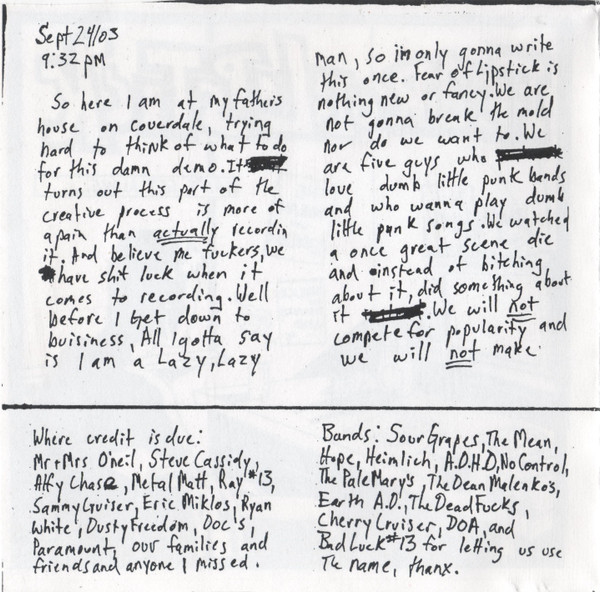 Sept 24/03
9:32 pm
So here I am at my fathers
house on Coverdale, trying
hard to think of what to do
for this damn demo. It
turns out this part of the
creative process is more of
a pain than actually recordin
it. And believe me fuckers, we
have shit luck when it
comes to recording. Well
before I get down to
buisiness, All I gotta say
is I am a Lazy, Lazy
man, so im only gonna write
this once. Fear of Lipstick is
nothing new or fancy. We are
not gonna break the mold
nor do we want to. We
are five guys who
love dumb little punk bands
and who wanna play dumb
little punk songs. We watched
a once great scene die
and instead of bitching
about it, did something about
it. We will not
compete for popularity and
we will not make
Where credit is due:
Mr + Mrs O'neil, Steve Cassidy,
Alfy Chase, Metal Matt, Ray #13,
Sammy Gruiser, Eric Miklos, Ryan
White, Dusty Freedom, Doc's,
Paramount, our families and
friends and anyone I missed.
Bands: Sour Grapes, The Mean,
Hope, Heimlich, A.D.H.D, No Control,
The Pale Mary's, The Dean Malenko's,
Earth A.D., The Dead Fucks,
Cherry Cruiser, DOA, and
Bad Luck #13 for letting us use
The name, thanx.